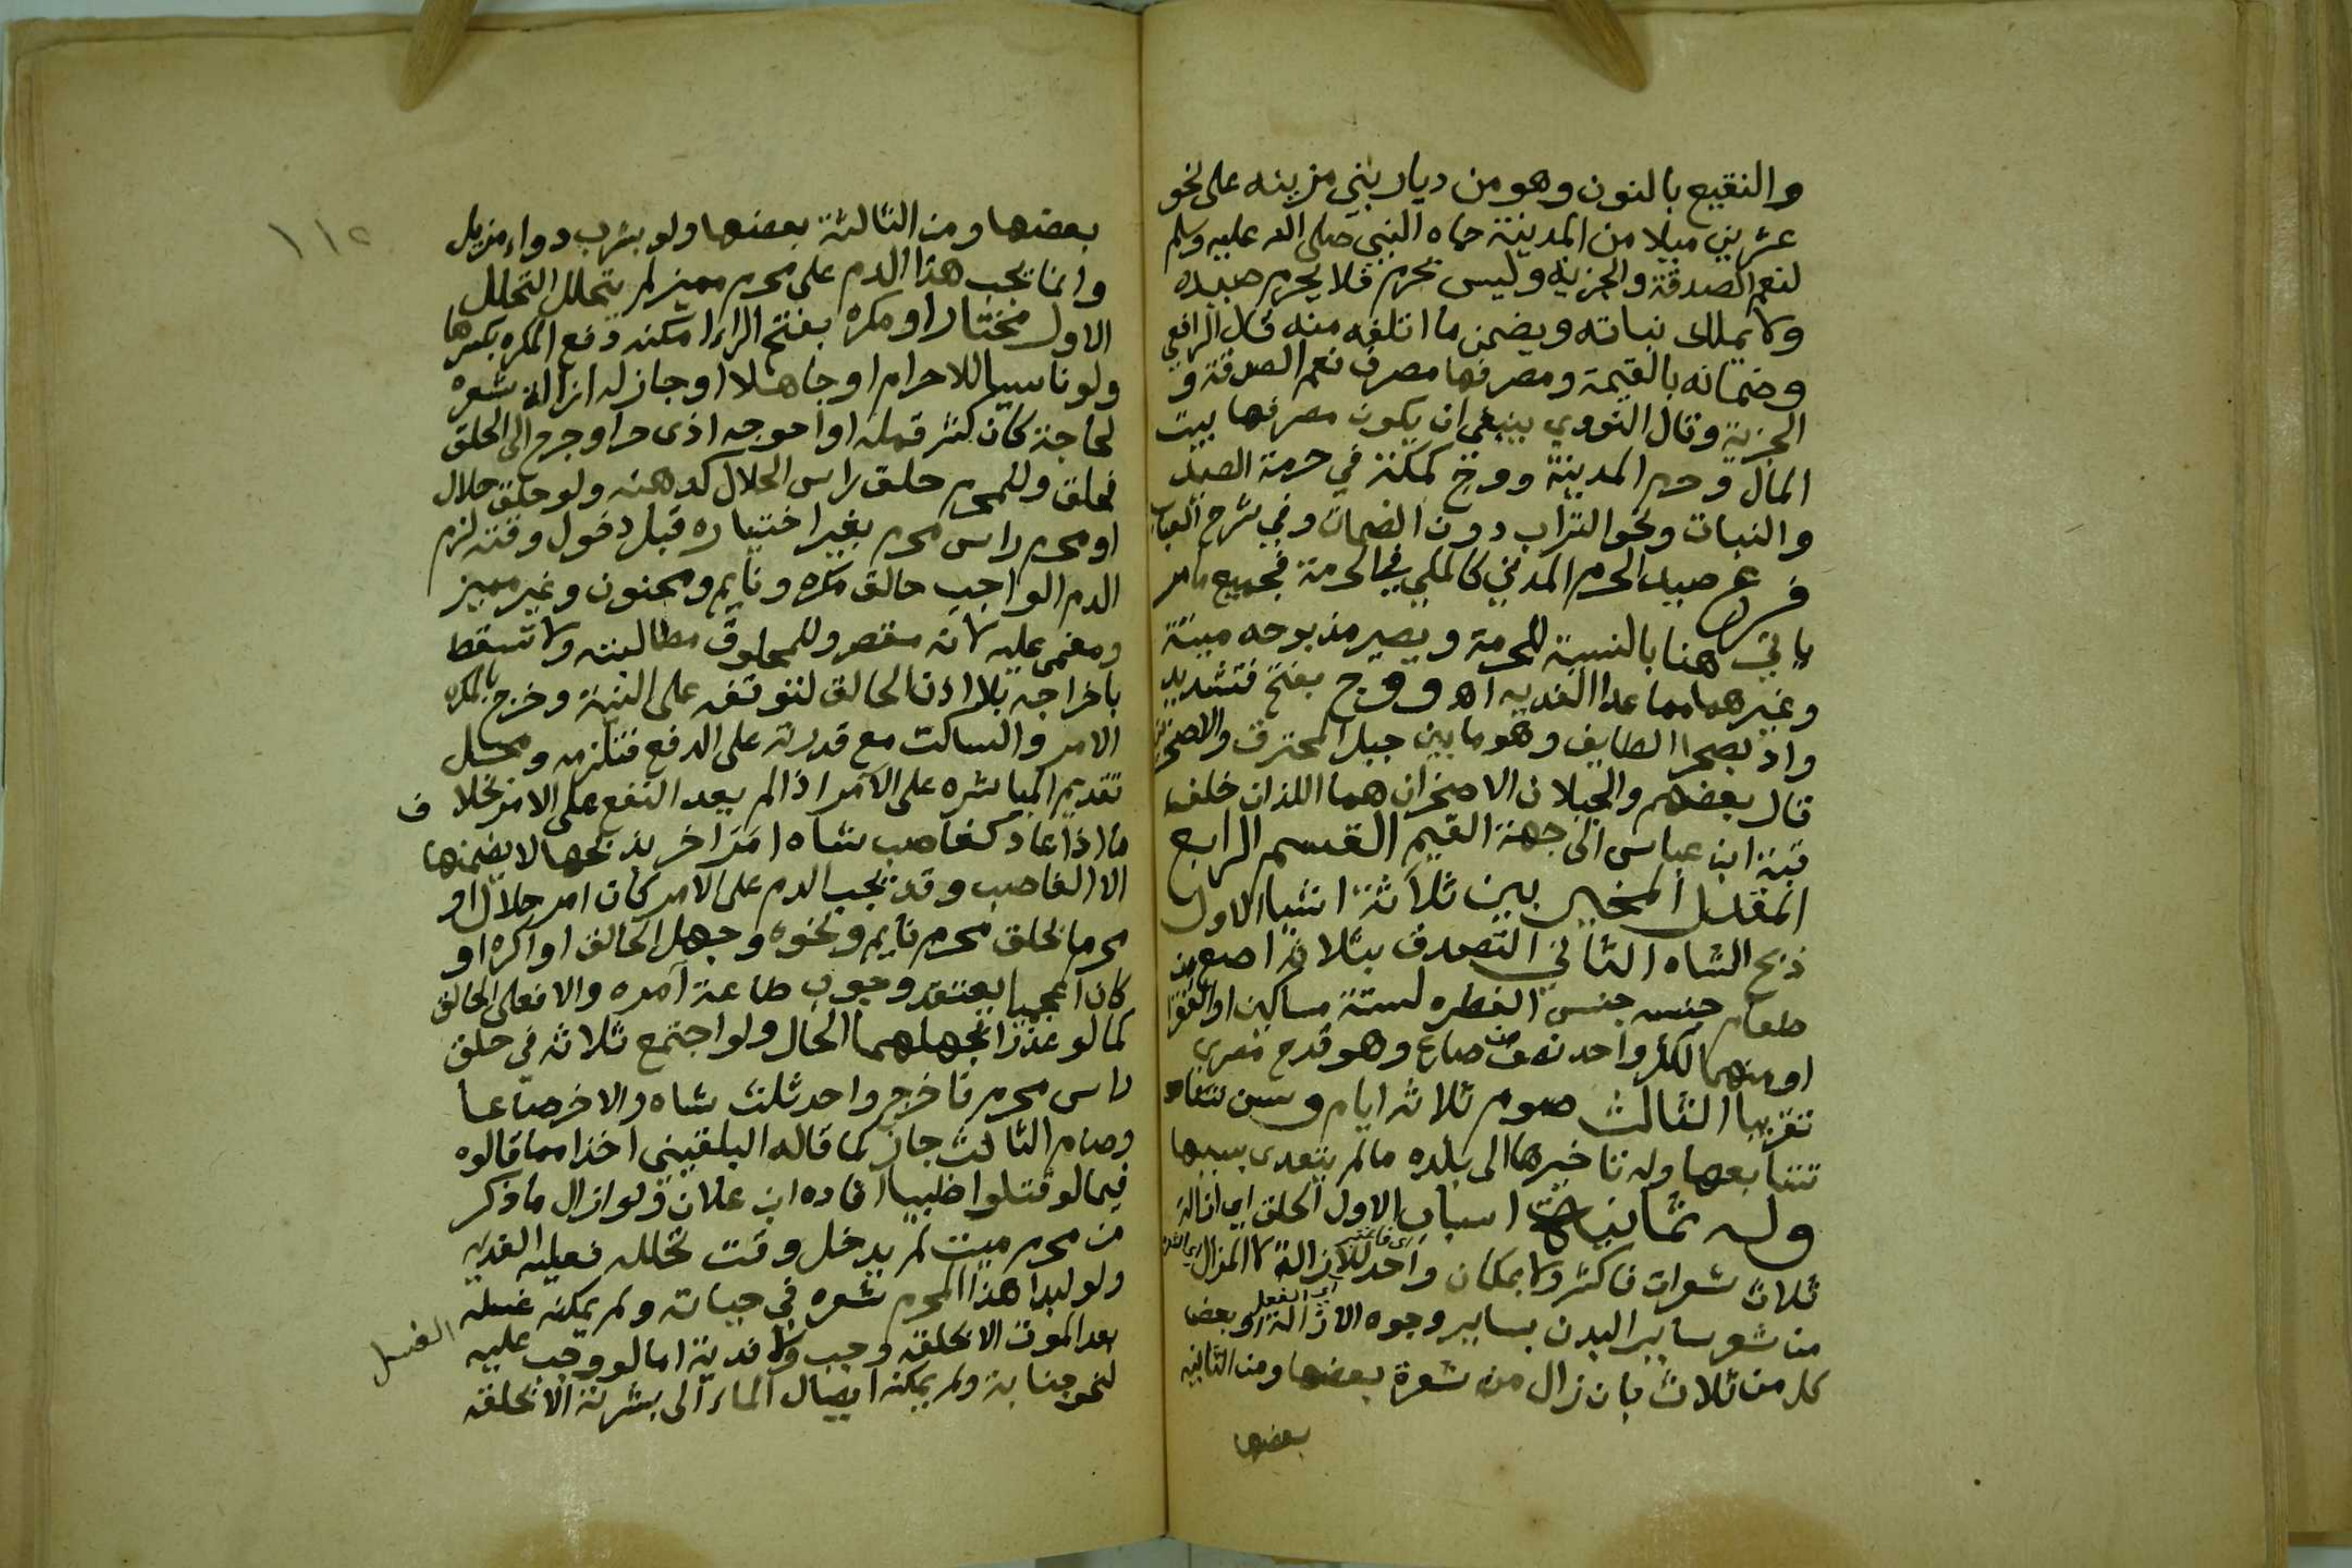 والنقيع بالنون وهو من ديار بني مزينه على نحو
عشرين ميلا من المدينة حماه النبي صلى الله عليه وسلم
لنعم الصدقة والجزية وليس بحرم فلا يحرم صيده
ولا يملك نباته ويضمن ما اتلفه منه قال الرافعي
وضمانه بالقيمة ومصرفها مصرف نعم الصدقة و
الجزية وقال النووي ينبغي ان يكون مصرفها بيت
المال وحرم المدينة ووج كمكة في حرمة الصيد
والنبات ونحو التراب دون الضمان وفي شرح العباب
فرع صيد الحرم المدني كالمكي في الحرمة فجميع ما مر
ياتي هنا بالنسبة للحرمة ويصير مذبوحه ميتة
وغيرهما مما عدا الفديه اهـ ووج بفتح فتشديد
واد بصحرا الطايف وهو ما بين جبل المحترق والاصخرين
قال بعضهم والجبلان الاصخران هما اللذان خلف
قبة ابن عباس الى جهة القيم القسم الرابع
المقدر المخير بين ثلاثة اشيا الاول
ذبح الشاه الثاني التصدق بثلاثة اصع من
طعام جنسه جنس الفطره لستة مساكين او الفقرا
او منهما لكل واحد نصف صاع وهو قدح مصري
تقريبا الثالث صوم ثلاثه ايام وسن
تتابعها وله تاخيرها الى بلده ما لم يتعدى بسببها
وله ثمانية اسباب الاول الحلق اي ازالة
ثلاث شعرات فاكثر ولا بمكان واحد للازالة لا المزال
اي الفعل
من شعر ساير البدن بساير وجوه الازالة او بعض
كل من ثلاث بان زال من شعرة بعضها ومن الثانيه
بعضها
١١٢
بعضها ومن الثالثة بعضها ولو بشرب دواء مزيل
وانما يجب هذا الدم على محرم مميز لم يتحلل التحلل
الاول مختارا او مكره بفتح الراء امكنه دفع المكره بكسرها
ولو ناسيا للاحرام او جاهلا او جاز له ازالة شعره
لحاجة كان كثر قمله او احوجه اذى حر او جرح الى الحلق
فحلق وللمحرم حلق راس الحلال كدهنه ولو حلق حلال
او محرم راس محرم بغير اختياره قبل دخول وقته لزم
الدم الواجب حالق مكره ونايم ومجنون وغير مميز
ومغمى عليه لانه مقصر وللمحلوق مطالبته ولا تسقط
باخراجه بلا اذن الحالق لتوقفه على النية وخرج بالمكره
الامر والساكت مع قدرته على الدفع فتلزمه ومحل
تقديم المباشره على الآمر اذا لم يعد النفع على الامر بخلاف
ما اذا عاد كغاصب شاه امر اخر بذبحها لا يضمنها
الا الغاصب وقد يجب الدم على الامر كان امر حلال او
محرما بحلق محرم نايم ونحوه وجهل الحالق او اكره او
كان اعجميا يعتقد وجوب طاعة آمره والا فعلى الحالق
كما لو عذرا بجهلهما الحال ولو اجتمع ثلاثه في حلق
راس محرم فاخرج واحد ثلث شاه والاخر صاعا
وصام الثالث جاز كما قاله البلقيني اخذا مما قالوه
فيما لو قتلوا ظبيا افاده ابن علان ولو ازال ما ذكر
من محرم ميت لم يدخل وقت تحلله فعليه الفديه
ولو لبدا هذا المحرم شعره في حياته ولم يمكنه غسله
بعد الموت الا بحلقه وجب ولا فدية اما لو وجب عليه
الغسل
لنحو جنابة ولم يمكنه ايصال الماء الى بشرته الا بحلقه